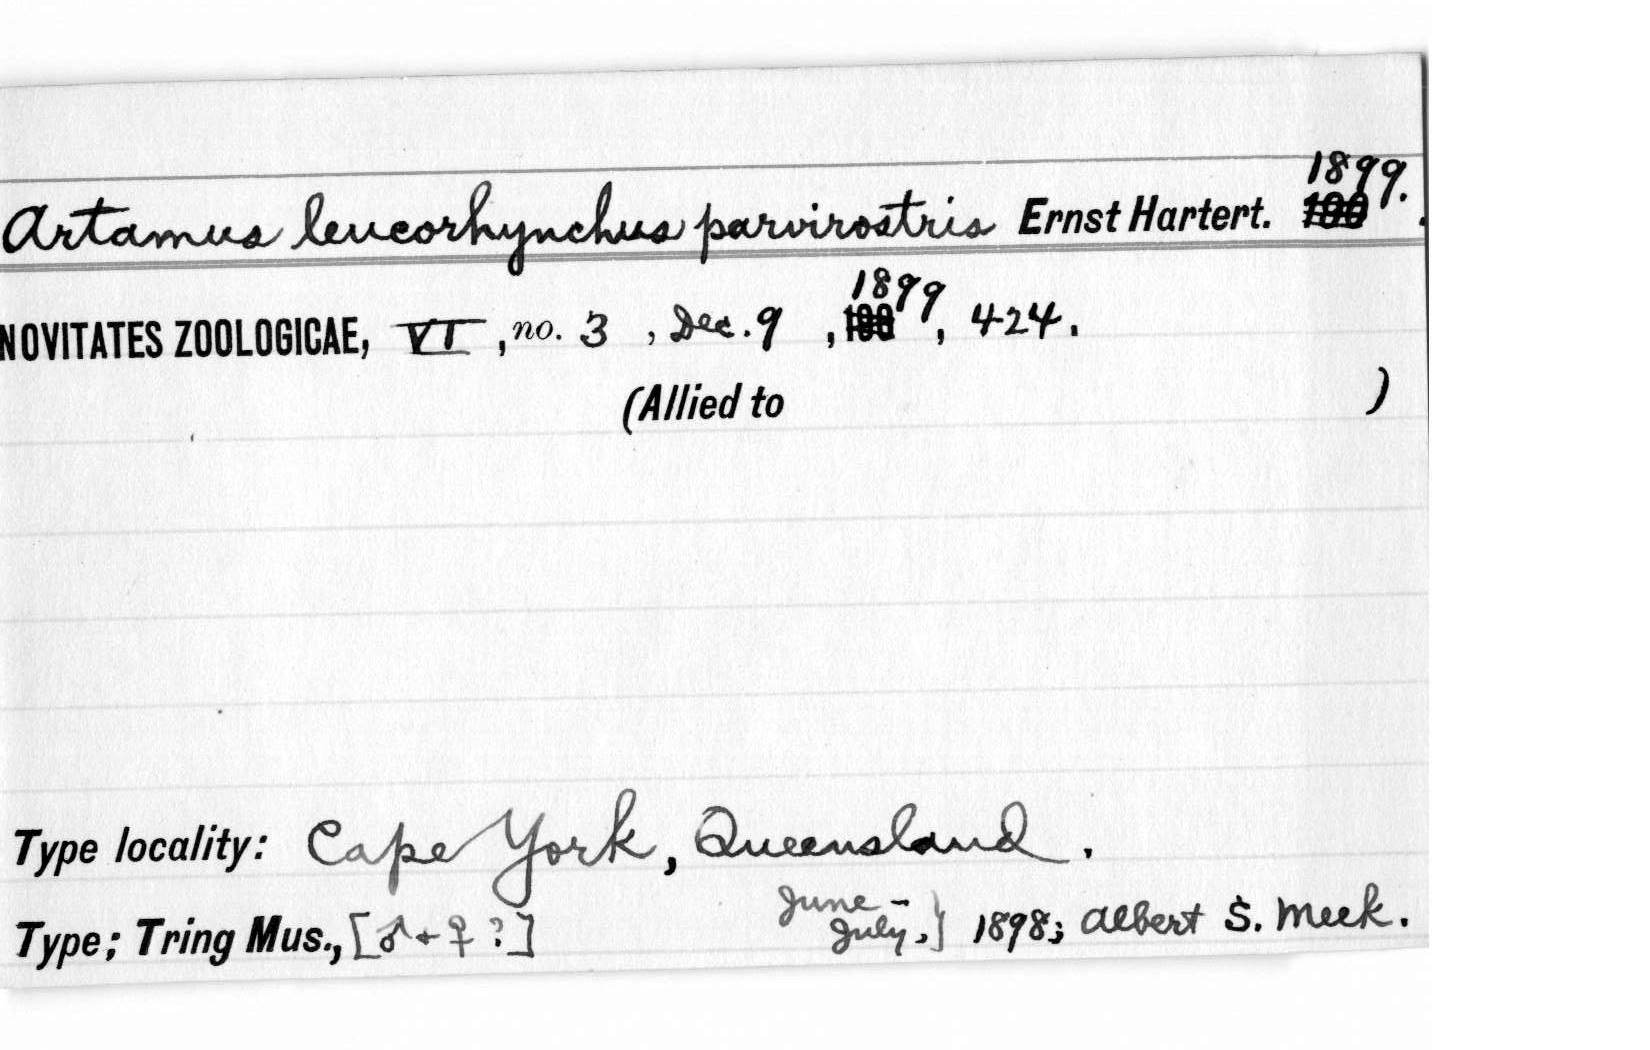 1899.
Artamus leucorhynchus parvirostris Ernst Hartert. 190 .
1899
NOVITATES ZOOLOGICAE, VI, no. 3, Dec. 9, 190 , 424.
(Allied to )
Type locality: Cape York, Queensland.
Type; Tring Mus., [♂ + ♀ ?] June – July, } 1898; Albert S. Meek.